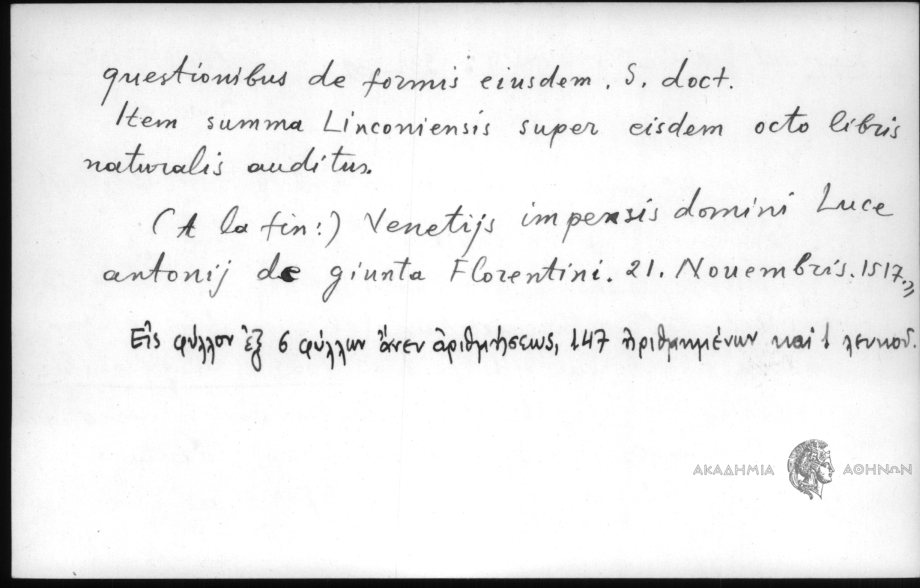 questionibus de formis eiusdem. S. doct.
Item summa Linconiensis super eisdem octo libris
naturalis auditus.
(A la fin:) Venetijs impensis domini Luce
antonij de giunta Florentini. 21. Nouembris. 1517.»
Εἰς φύλλον ἐξ 6 φύλλων ἄνευ ἀριθμήσεως, 147 ἠριθμημένων καὶ 1 λευκοῦ.
ΑΚΑΔΗΜΙΑ ΑΘΗΝΩΝ